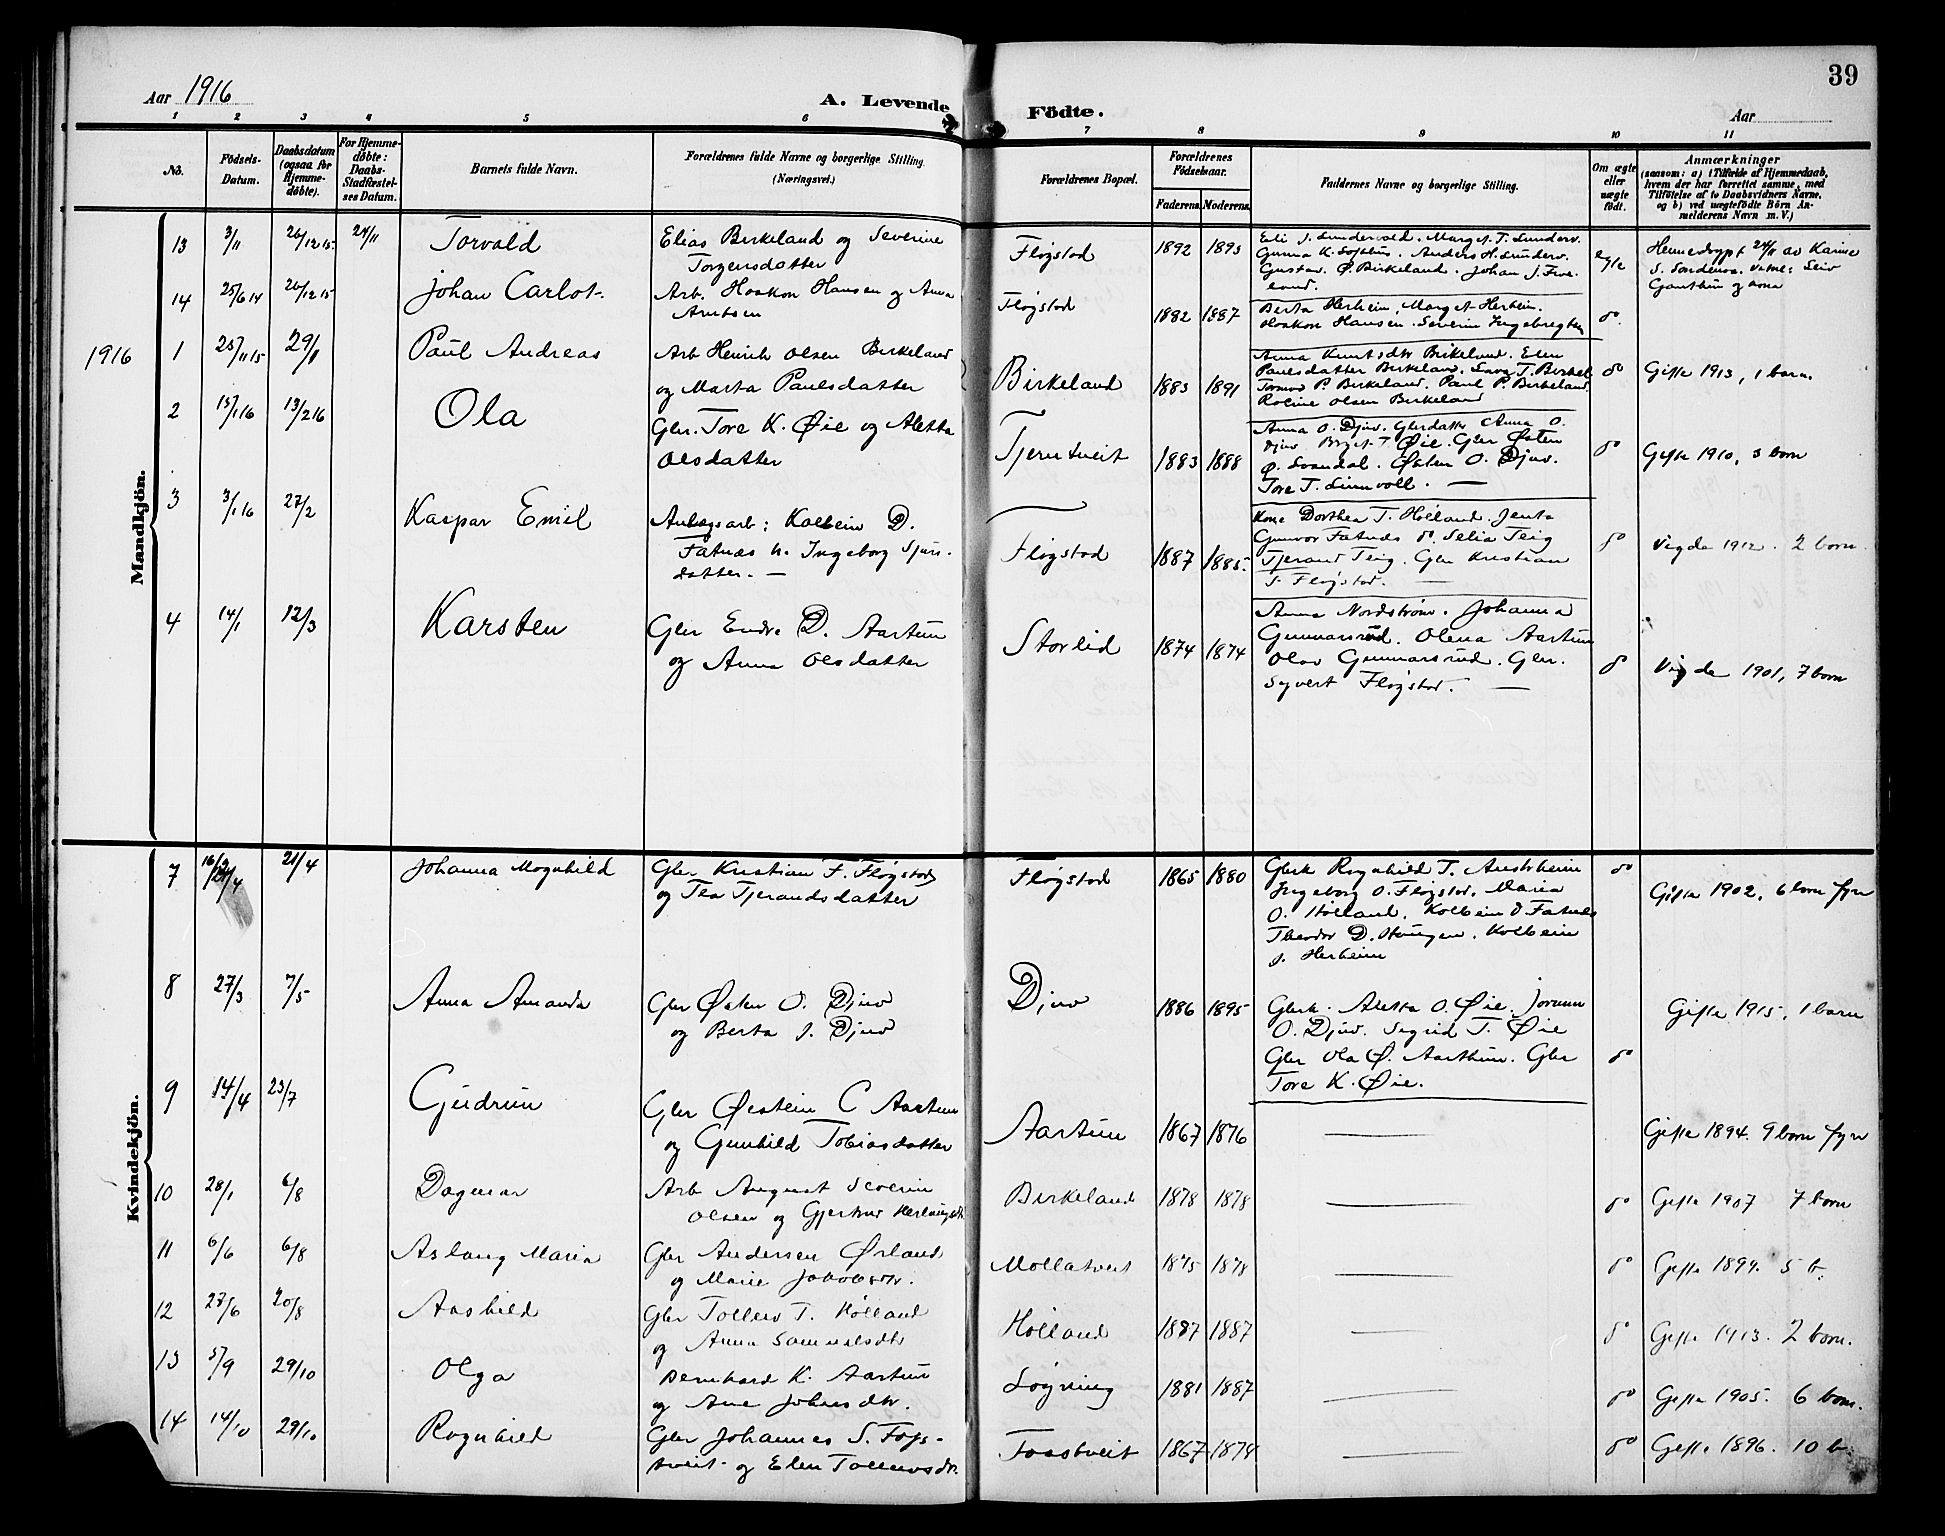 39
Aar 1916
A. Levende Födte.
Aar
1 2 3 4 5 6 7 8 9 10 11
No.
Födsels-Datum.
Daabsdatum (ogsaa for Hjemme-döbte).
For Hjemme-döbte: Daabs-Stadfæstel-ses Datum.
Barnets fulde Navn.
Forældrenes fulde Navne og borgerlige Stilling. (Næringsvei.)
Forældrenes Bopæl.
Forældrenes Födselsaar.
Faderens. Moderens.
Faddernes Navne og borgerlige Stilling.
Om ægte eller uægte födt.
Anmærkninger
(saasom: a) i Tilfælde af Hjemmedaab,
hvem der har forrettet samme, med
Tilföielse af to Daabsvidners Navne,
og b) ved uægtefödte Börn An-
melderens Navn m. V.)
Mandkjön.
13 3/11 26/12 15 24/11 Torvald
Elias Birkeland og Severine
Torgersdatter
Fløgstad 1892 1893
Gustav Ø. Birkeland. Johan J.
egte
Hemedøypt 24/11 av Karine
14 25/6 14 26/12 15 Johan Carlot
Arb. Haakon Hansen og Anna
Arntsen
Fløgstad 1882 1887
Berta Herheim, Marget Herheim.
Haakon Hansen. Severin Ingebregtsen
do.
1916 1 25/11 15 29/1 Paul Andreas
Arb Henrik Olsen Birkeland
og Marta Paulsdatter
Birkeland 1883 1891
Anna Knutsdtr Birkeland. Elen
Paulsdatter Birkeland.
Tormod P. Birkeland, Paul P. Birkeland
Roline Olsen Birkeland
do Gifte 1913, 1 barn.
2 15/1 16 13/2 16 Ola
Gbr. Tore K. Øie og Aletta
Olsdatter
Tjerntveit 1883 1888
Anna O. Djuv. Gbrdatter Anna O.
Djuv T Øie. Gbr Østen
Ø. Svandal. Østen O. Djuv.
Tore T. Linnvoll.
do Gifte 1910, 3 born
3 3/1 16 27/2 Kaspar Emil
Anlægsarb: Kolbein D.
Fatnes h. Ingeborg Sjurs-
datter.
Fløgstad 1887 1885
Kone Dorthea T. Hølland. Jenta
Gunvor Fatnes do. Selia Teig
Tjerand Teig. Gbr Kristian
T. Fløgstad.
do Vigde 1912. 2 born.
4 14/1 12/3 Karsten
Gbr Endre D. Aartun
og Anna Olsdatter
Storlid 1874 1874
Anna Nordstrøm. Johanna
Gunnarsrud. Olena Aartun
Olav Gunnarsrud. Gbr.
Syvert Fløgstad.
do Vigde 1901, 7 born
Kvindekjön.
7 21/4 Johanna Magnhild
Gbr Kristian T. Fløgstad
og Tea Tjerandsdatter
Fløgstad 1865 1880
Gbrk Ragnhild T.
Ingeborg O. Fløgstad, Maria
O. Hølland. Kolbein D Fatnes
Theodor D. Haugen. Kolbein
J. Herheim
do Gifte 1902, 6 born fyr
8 27/3 7/5 Anna Amanda
Gbr Østen O. Djuv
og Berta J. Djuv
Djuv 1886 1895
Gbrk. Aletta O. Øie. Jorunn
O. Djuv. Sigrid T. Øie
Gbr Ola Ø. Aarthun. Gbr
Tore K. Øie.
do Gifte 1915, 1 barn
9 14/4 23/7 Gjudrun
Gbr Øistein C Aartun
og Gunhild Tobiasdatter
Aartun 1867 1876
Gifte 1894. 9 born fyr
10 28/1 6/8 Dagmar
Arb August Severin
Olsen og Gjertrud
Birkeland 1878 1878
do Gifte 1907 7 born
11 6/6 6/8 Aslaug Maria
Gbr Andersen Ørland
og Marie Jakobsdtr.
Mollatveit 1875 1878
do Gifte 1899. 5 b.
12 27/6 20/8 Aashild
Gbr Tollew T. Hølland
og Anna Samuelsdtr
Hølland 1887 1887
do Gifte 1913. 2 born.
13 5/9 29/10 Olga
Bernhard K. Aartun
og Ane Johnsdtr.
Løgning 1881 1887
do Gifte 1905. 6 born.
14 14/10 29/10 Ragnhild
Gbr Johannes S.
tveit og Elen Tollewsdtr.
Faastveit 1867 1874
do Gifte 1896. 10 b.